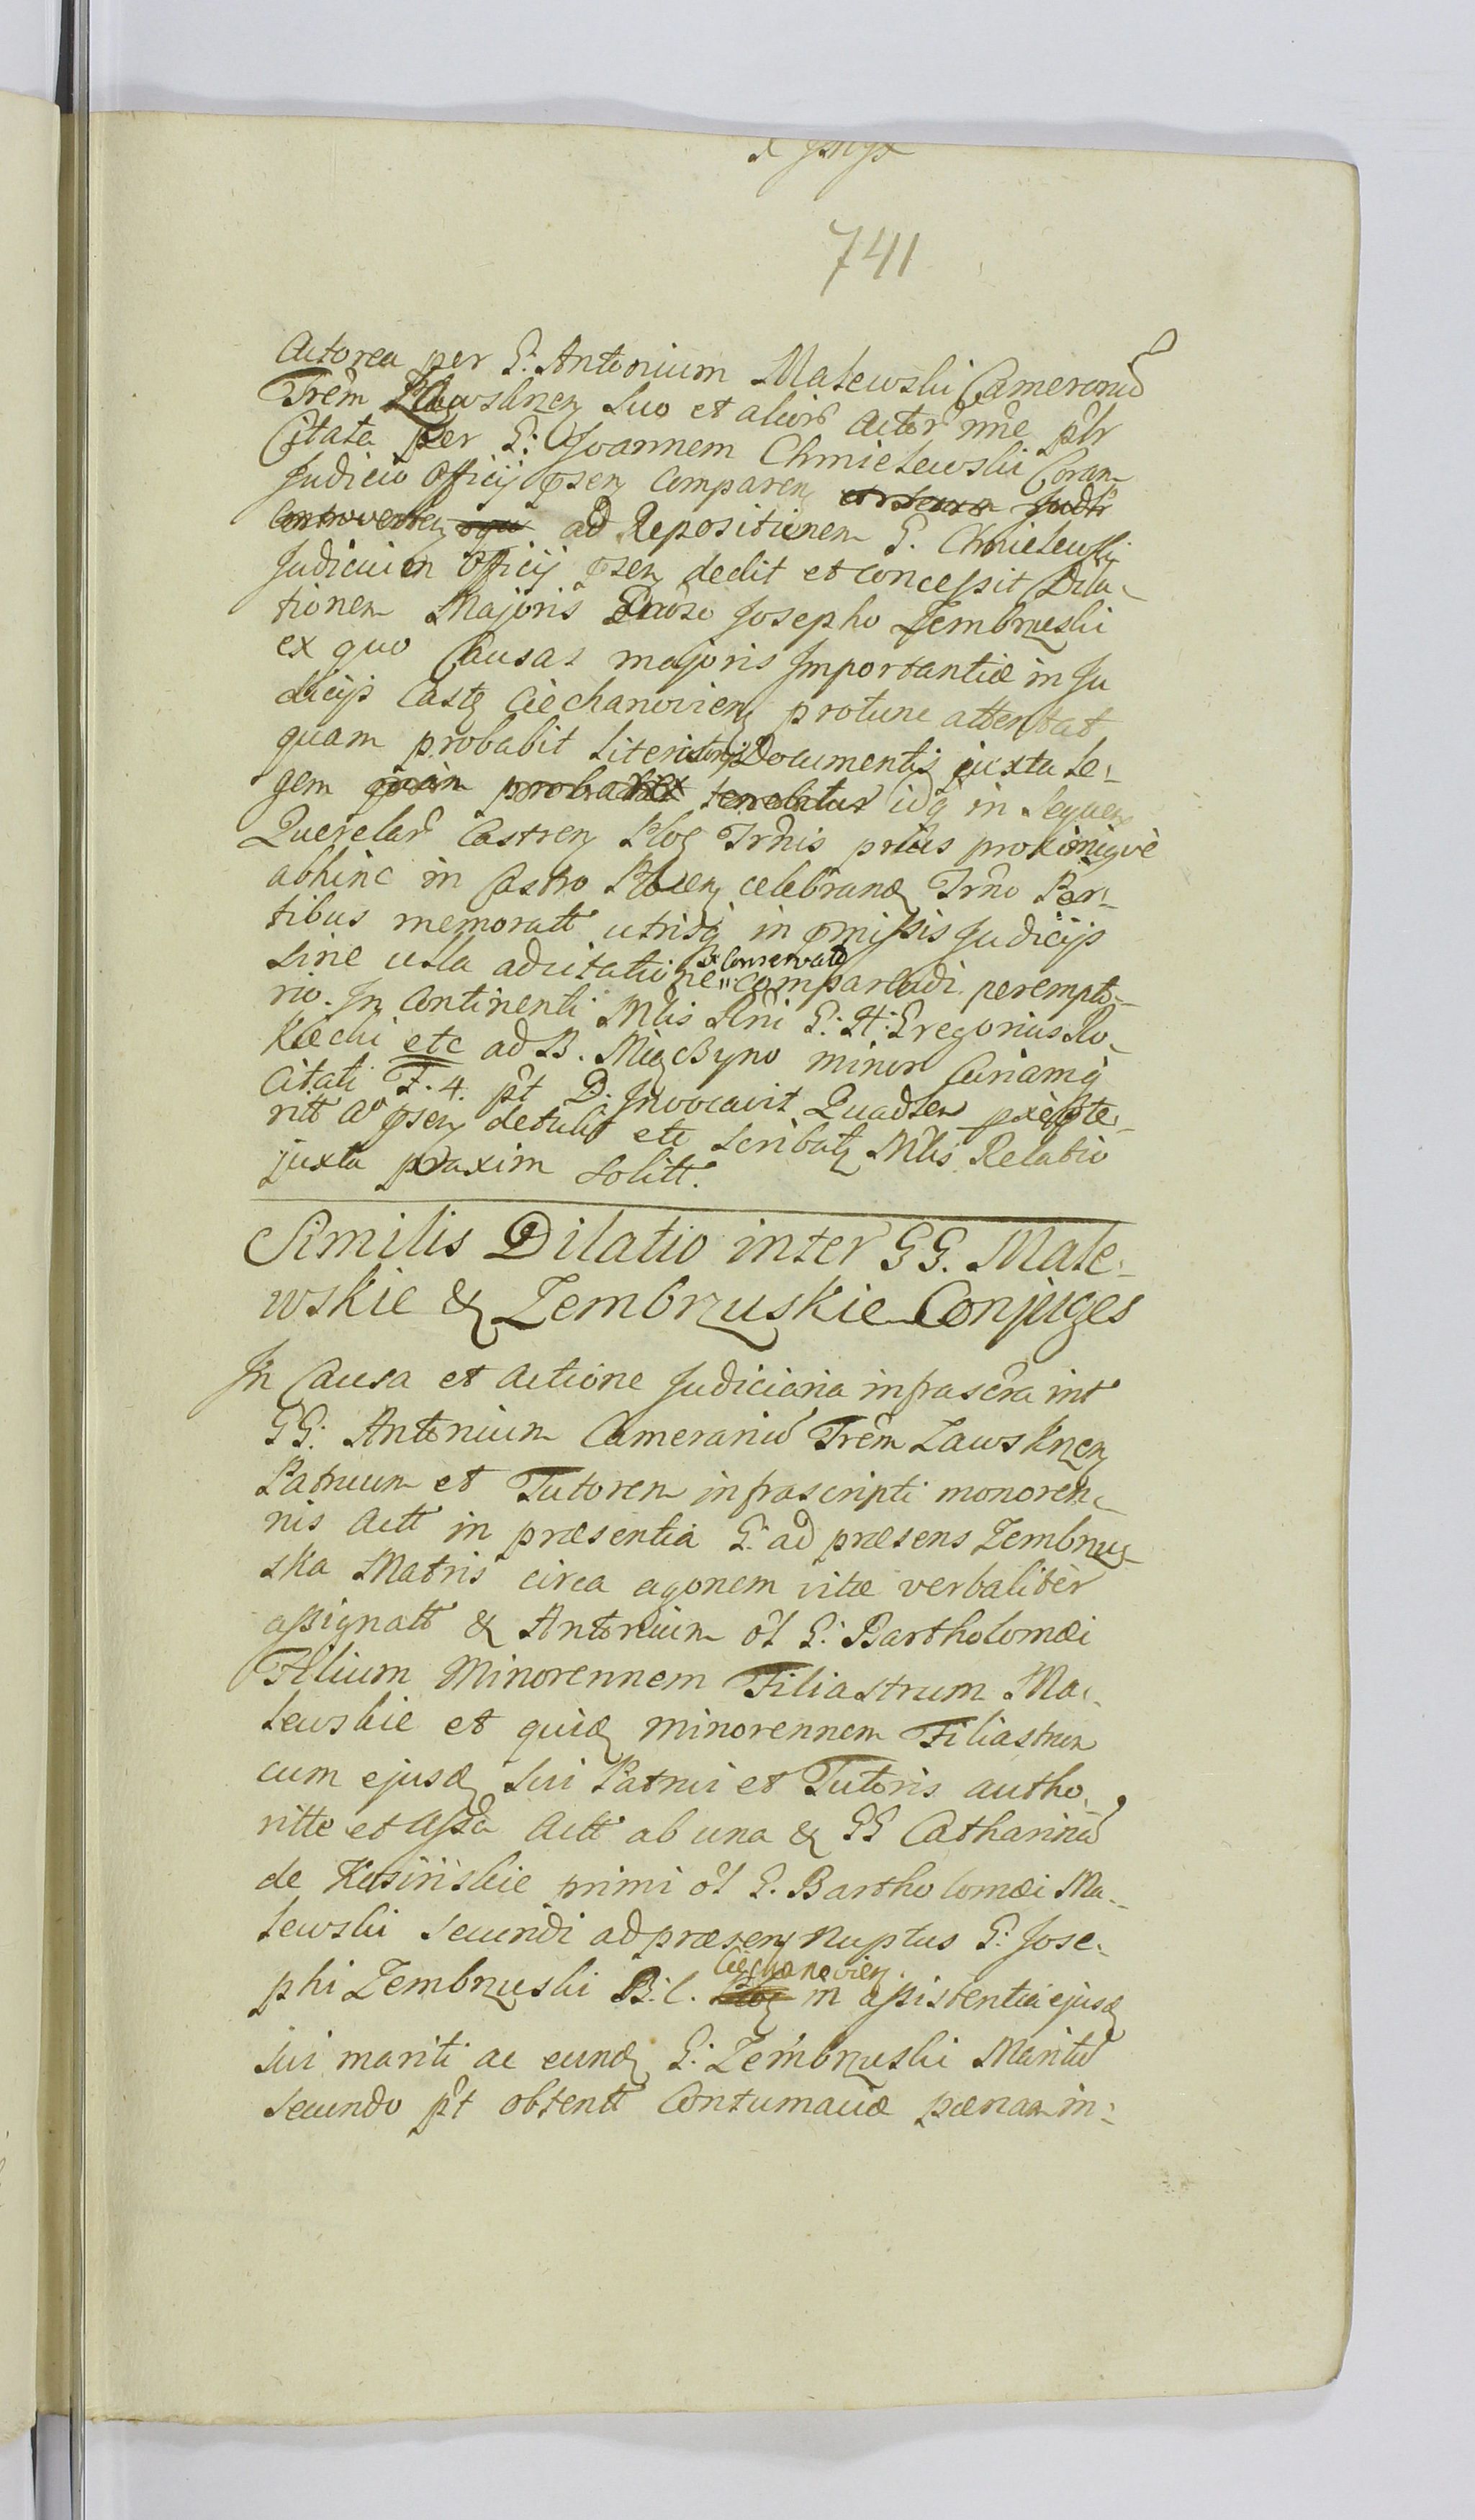 741
Actorea per G. Antonium Malewski Camerariũ
Trem Zawskrzen suo et alior Actor nne ptr
Citata per G: Joannem Chmielewski Coram
Judicio Officij psen Comparen et seur Judtr
Controverten ad Repositionem G. Chmielewski
Judicium Officij psen dedit et concessit Dila-
tionem Majoris Gnoso Josepho Zembrzuski
ex quo Causas majoris Importantiæ in Ju
dicijs Castr Ciechanovien protunc attentat
quam probabit Literis Documentis juxta Le-
gem probare tenebitur idq in sequen
Querelar Castren Ploc Trnis prius proximique
abhinc in Castro Plocen celebrand Trno Par-
tibus memoratt utrisq in pmissis Judicijs
sine ulla adcitatione conservato comparendi perempto-
rio. In Continenti Mtis Rni G: H: Gregorius Ro-
kicki etc ad B. Mięczyno minor Curiamq
Citati F. 4. pt D. Invocavit Quadsen
ritt A psen detulit etc scribat Mtis Relatio
juxta praxim solitt.
Similis Dilatio inter GG. Male-
wskie & Zembrzuskie Conjuges
In Causa et Actione Judiciaria infrascra int
GG. Antonium Camerariũ Trem Zawskrzen
Patruum et Tutorem infrascripti monoren-
nis Actt in præsentia G. ad præsens Zembrzu-
ska Matris circa agonem vitæ verbaliter
assignatt & Antonium ol G. Bartholomæi
Filium Minorennem Filiastrum Ma-
lewskie et quid minorennem Filiastrum
cum ejusd sui Patrui et Tutoris autho-
ritte et Assa Actt ab una & GG Catharinã
de Kosinskie primi ol G. Bartholomæi Ma-
lewski secundi ad præsen nuptus G. Jose-
phi Zembrzuski B. C. Ciechanovien in assistentia ejusd
sui mariti ac eund G. Zembrzuski Maritũ
secundo pt obtentt Contumaciæ pænam in-